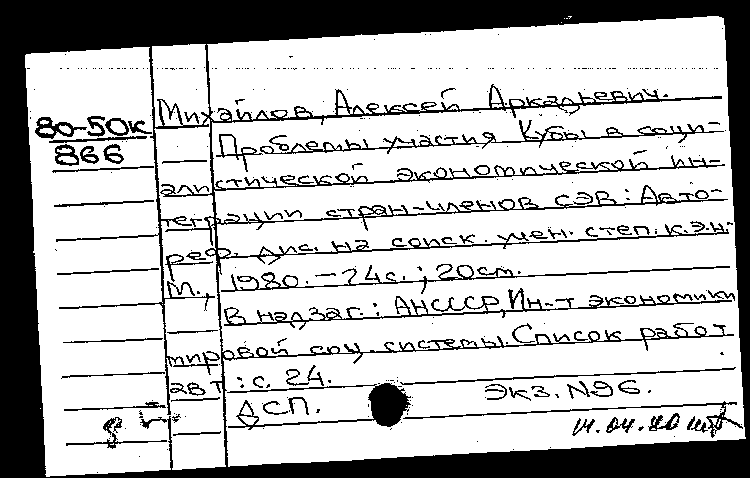 Михайлов, Алексей Аркадьевич.
80-50к
866
Проблемы участия Кубы в соци-
алистической экономической ин-
теграции стран-членов СЭВ: Авто-
реф. дис. на соиск. учен. степ. к.э.н.-
М., 1980. – 24с.; 20см.
В надзаг.: АНСССР, Ин-т экономики
мировой соц. системы. Список работ
авт: с. 24.
ДСП.
Экз. N96.
8
14.04.80